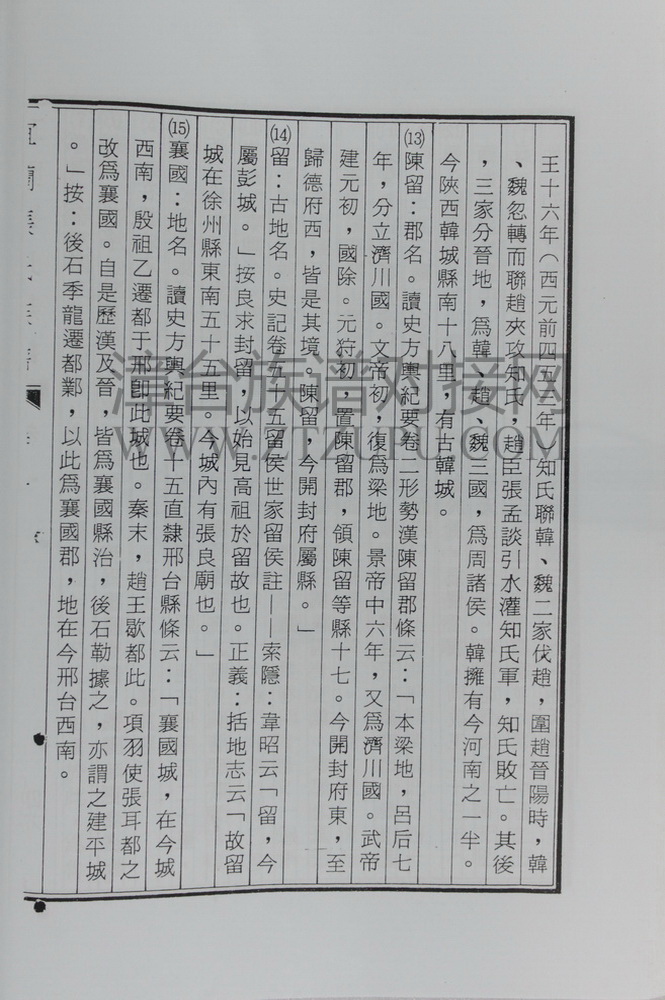 王十六年（西元前四五三年）知氏聯韓、魏二家伐趙，圍趙晉陽時，韓
、魏忽轉而聯趙夾攻知氏，趙臣張孟談引水灌知氏軍，知氏敗亡。其後
，三家分晉地，爲韓、趙、魏三國，爲周諸侯。韓擁有今河南之一半。
今陝西韓城縣南十八里，有古韓城。
⒀陳留：郡名。讀史方輿紀要卷二形勢漢陳留郡條云：「本梁地，呂后七
年，分立濟川國。文帝初，復爲梁地。景帝中六年，又爲濟川國。武帝
建元初，國除。元狩初，置陳留郡，領陳留等縣十七。今開封府東，至
歸德府西，皆是其境。陳留，今開封府屬縣。」
⒁留：古地名。史記卷五十五留侯世家留侯註——索隱：韋昭云「留，今
屬彭城。」按良求封留，以始見高祖於留故也。正義：括地志云「故留
城在徐州縣東南五十五里。今城內有張良廟也。」
⒂襄國：地名。讀史方輿紀要卷十五直隸邢台縣條云：「襄國城，在今城
西南，殷祖乙遷都于邢卽此城也。秦末，趙王歇都此。項羽使張耳都之
改爲襄國。自是歷漢及晉，皆爲襄國縣治，後石勒據之，亦謂之建平城
。」按：後石季龍遷都鄴，以此爲襄國郡，地在今邢台西南。
津台族谱对接网
WWW.ZTZUPU.COM